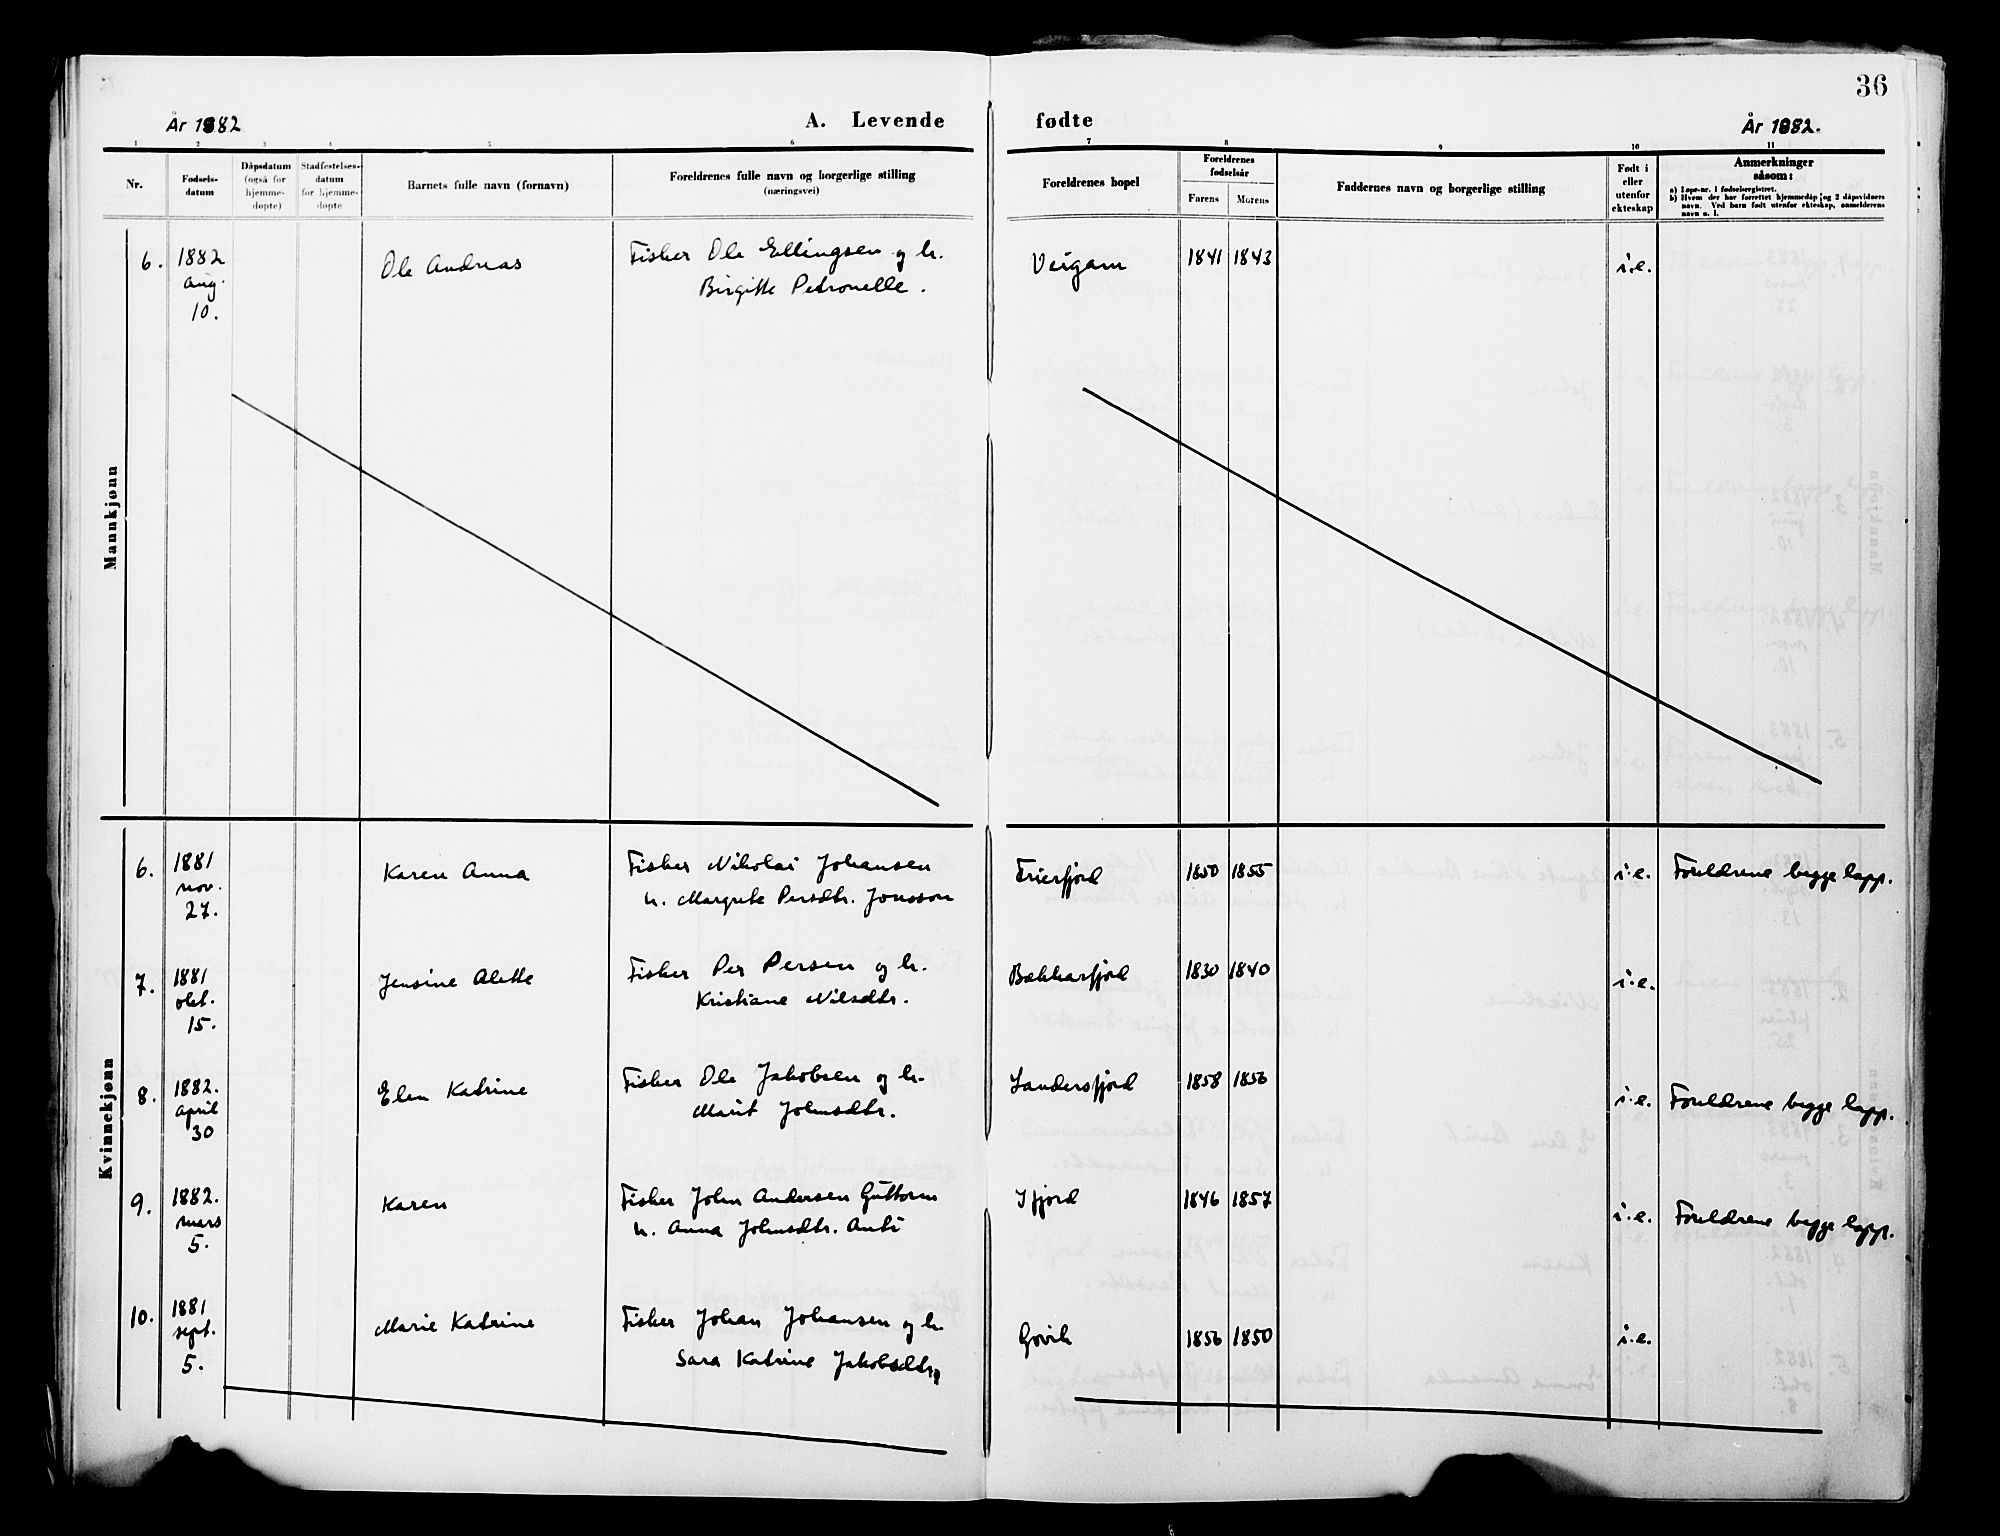 36
År 1882
A. Levende
fødte
År 1882.
1 2 3 4 5 6 7 8 9 10 11
Nr.
Fødsels-
datum
Dåpsdatum
(også for
hjemme-
døpte)
Stadfestelses-
datum
for hjemme-
døpte
Barnets fulle navn (fornavn)
Foreldrenes fulle navn og borgerlige stilling
(næringsvei)
Foreldrenes bopel
Foreldrenes
fødselsår
Farens Morens
Faddernes navn og borgerlige stilling
Født i
eller
utenfor
ekteskap
Anmerkninger
såsom:
a) Løpe-nr. i fødselsregistret.
b) Hvem der har forrettet hjemmedåp og 2 dåpsvidners
navn. Ved barn født utenfor ekteskap, anmelderens
navn o. l.
Mannkjønn
6. 1882 Ole Andreas Fisker Ole Ellingsen og h. Veigam 1841 1843 i.e.
aug. Birgitte Petronelle.
10.
Kvinnekjønn
6. 1881 Karen Anna Fisker Nikolai Johansen Frierfjord 1850 1855 i.e. Foreldrene begge lapp.
nov. h. Margrete Persdtr. Jonsson
27.
7. 1881 Jensine Alette Fisker Per Persen og h. Bekkarfjord 1830 1840 i.e.
okt. Kristiane Nilsdtr.
15.
8. 1882. Elen Katrine Fisker Ole Jakobsen og h. Landersfjord 1858 1856 i.e. Foreldrene begge lapp.
april Marit Johnsdtr.
30
9. 1882. Karen Fisker John Andersen Guttorm Ifjord 1846 1857 i.e. Foreldrene begge lapp.
mars h. Anna Johnsdtr. Anti
5.
10. 1881 Marie Katrine Fisker Johan Johansen og h. Govik 1856 1850 i.e.
sept. Sara Katrine Jakobsdtr.
5.